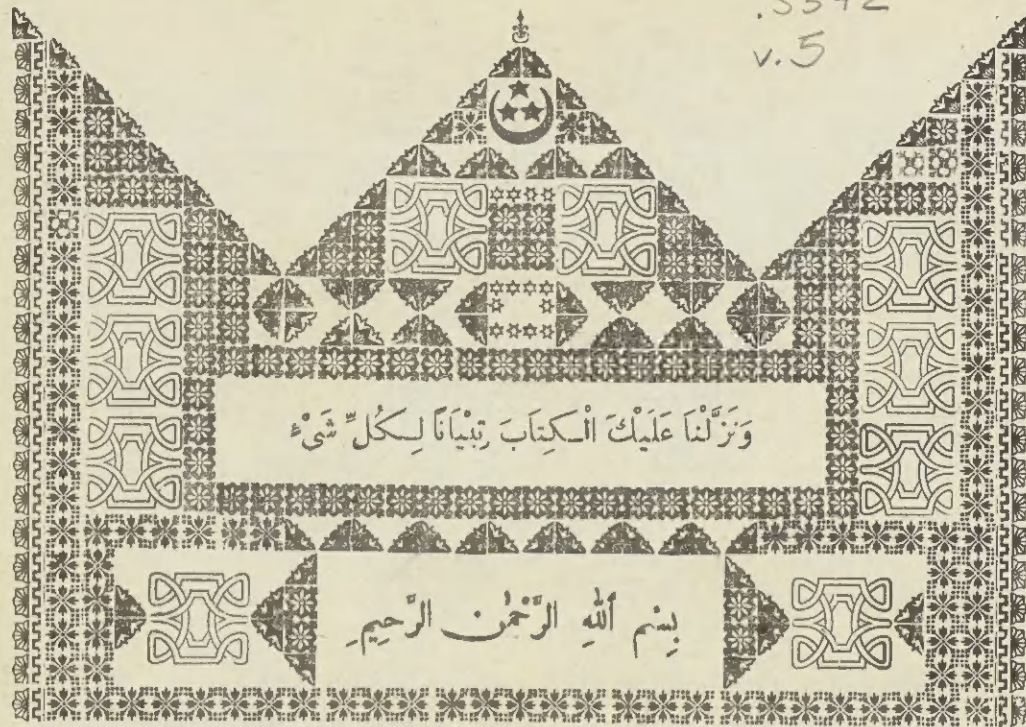 .5392
v.5
وَنَزَّلْنَا عَلَيْكَ الْكِتَابَ تِبْيَانًا لِكُلِّ شَىْءٍ
بِسْمِ ٱللهِ الرَّحْمٰنِ الرَّحِيمِ